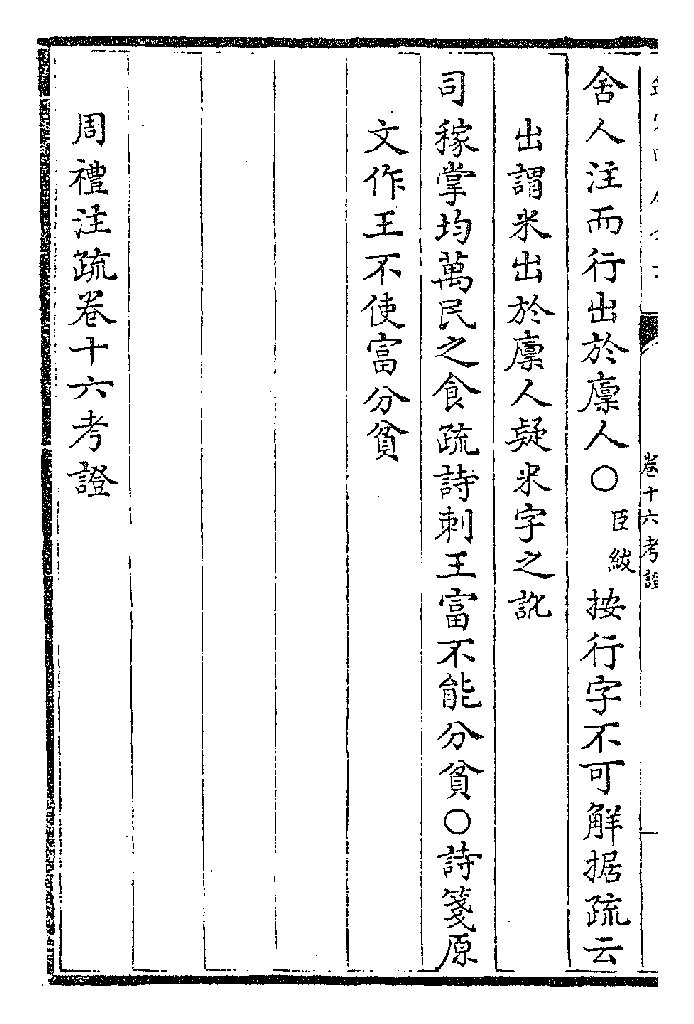 卷十六考證
舍人注而行出於廩人○臣紱按行字不可解据疏云
出謂米出於廩人疑米字之訛
司稼掌均萬民之食疏詩刺王富不能分貧○詩箋原
文作王不使富分貧
周禮注疏卷十六考證